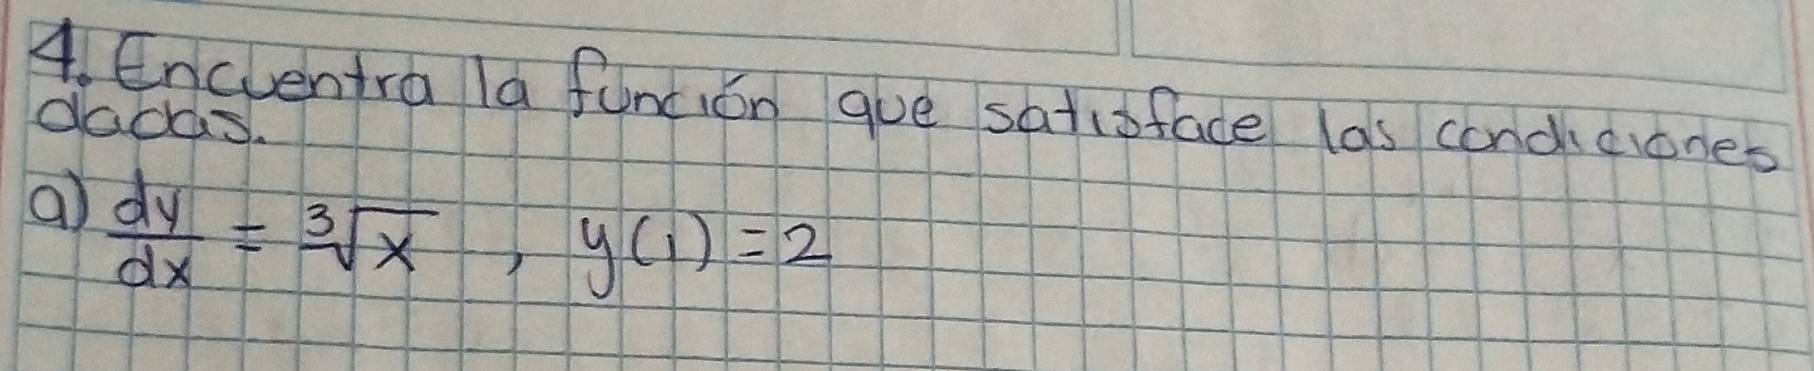 4. Encuentra la función que satisface las condiciones
dadas.
a) dy/dx = ∛x , y(1) = 2